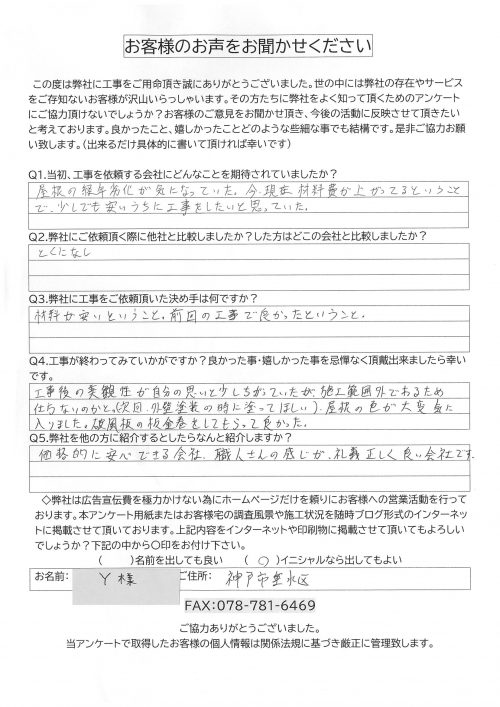 お客様のお声をお聞かせください
この度は弊社に工事をご用命頂き誠にありがとうございました。世の中には弊社の存在やサービス
をご存知ないお客様が沢山いらっしゃいます。その方たちに弊社をよく知って頂くためのアンケート
にご協力頂けないでしょうか？お客様のご意見をお聞かせ頂き、今後の活動に反映させて頂きたい
と考えております。良かったこと、嬉しかったことどのような些細な事でも結構です。是非ご協力お願
い致します。（出来るだけ具体的に書いて頂ければ幸いです）
Q1.当初、工事を依頼する会社にどんなことを期待されていましたか？
屋根の経年劣化が気になっていた。今現在材料費が上がってるということ
で、少しでも安いうちに工事をしたいと思っていた。
Q2.弊社にご依頼頂く際に他社と比較しましたか？した方はどこの会社と比較しましたか？
とくになし
Q3.弊社に工事をご依頼頂いた決め手は何ですか？
材料が安いということ。前回の工事で良かったということ。
Q4.工事が終わってみていかがですか？良かった事・嬉しかった事を忌憚なく頂戴出来ましたら幸い
です。
工事後の美観性が自分の思いと少しちがっていたが、施工範囲外であるため
仕方ないのかと。（次回、外壁塗装の時に塗ってほしい）。屋根の色が大変気に
入りました。破風板の板金巻をしてもらって良かった。
Q5.弊社を他の方に紹介するとしたらなんと紹介しますか？
価格的に安心できる会社、職人さんの感じが、礼義正しく良い会社です
◇弊社は広告宣伝費を極力かけない為にホームページだけを頼りにお客様への営業活動を行って
おります。本アンケート用紙またはお客様宅の調査風景や施工状況を随時ブログ形式のインターネッ
トに掲載させて頂いております。上記内容をインターネットや印刷物に掲載させて頂いてもよろしい
でしょうか？下記の中から〇印をお付け下さい。
（　　）名前を出しても良い　（ ○ ）イニシャルなら出してもよい
お名前： Y様 ご住所： 神戸市垂水区
FAX：078-781-6469
ご協力ありがとうございました。
当アンケートで取得したお客様の個人情報は関係法規に基づき厳正に管理致します。